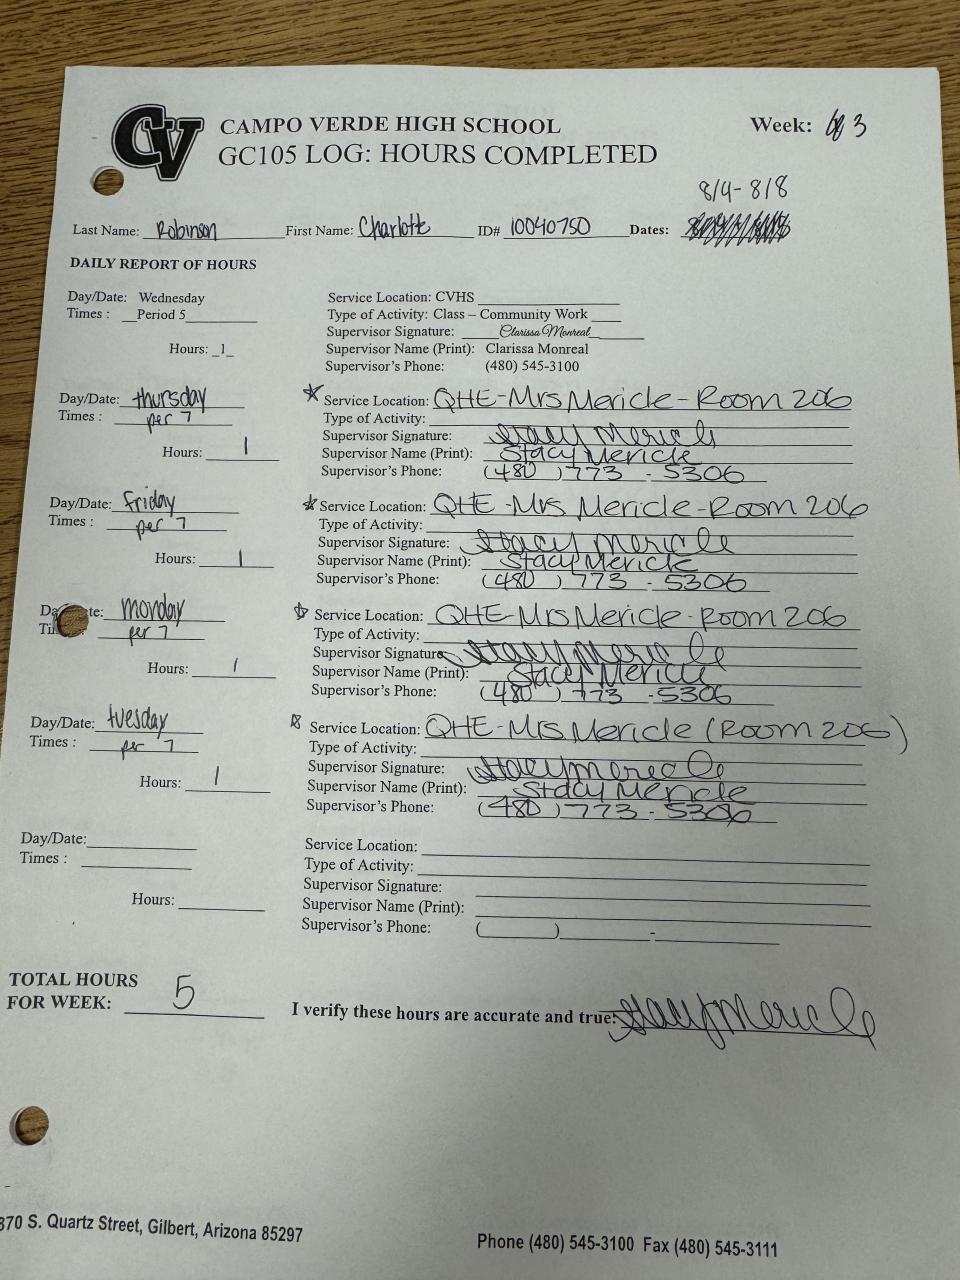 CV
CAMPO VERDE HIGH SCHOOL
GC105 LOG: HOURS COMPLETED
Week: 3
8/4-8/8
Last Name: Robinson First Name: Charlotte ID# 10040750 Dates:
DAILY REPORT OF HOURS
Day/Date: Wednesday
Times : __Period 5
Hours: _1_
Service Location: CVHS
Type of Activity: Class – Community Work
Supervisor Signature: Clarissa Monreal
Supervisor Name (Print): Clarissa Monreal
Supervisor's Phone: (480) 545-3100
Day/Date: thursday
Times : per 7
Hours: 1
☆ Service Location: QHE-Mrs Mericle-Room 206
Type of Activity:
Supervisor Signature: Stacy Mericle
Supervisor Name (Print): Stacy Mericle
Supervisor's Phone: (480) 773-5306
Day/Date: friday
Times : per 7
Hours: 1
☆ Service Location: QHE-Mrs Mericle-Room 206
Type of Activity:
Supervisor Signature: Stacy Mericle
Supervisor Name (Print): Stacy Mericle
Supervisor's Phone: (480) 773-5306
Da te: monday
Ti per 7
Hours: 1
☆ Service Location: QHE-Mrs Mericle-Room 206
Type of Activity:
Supervisor Signature Stacy Mericle
Supervisor Name (Print): Stacy Mericle
Supervisor's Phone: (480) 773-5306
Day/Date: tuesday
Times : per 7
Hours: 1
☆ Service Location: QHE-Mrs Mericle (Room 206)
Type of Activity:
Supervisor Signature: Stacy Mericle
Supervisor Name (Print): Stacy Mericle
Supervisor's Phone: (480) 773-5306
Day/Date:
Times :
Hours:
Service Location:
Type of Activity:
Supervisor Signature:
Supervisor Name (Print):
Supervisor's Phone: ( ) -
TOTAL HOURS
FOR WEEK: 5
I verify these hours are accurate and true: Stacy Mericle
870 S. Quartz Street, Gilbert, Arizona 85297
Phone (480) 545-3100 Fax (480) 545-3111